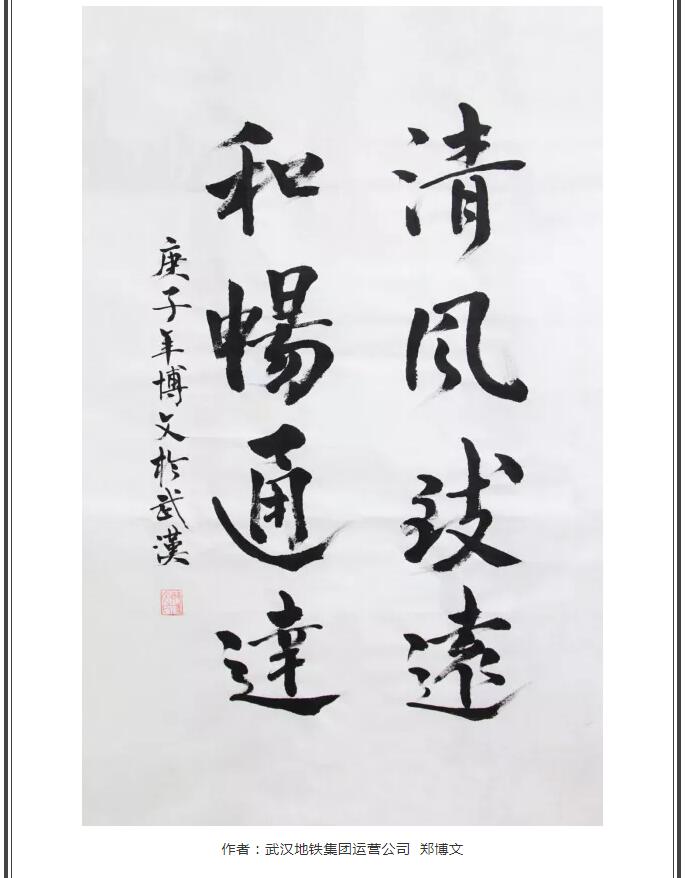 清风致遠
和暢通達
庚子年博文於武漢
作者：武汉地铁集团运营公司 郑博文